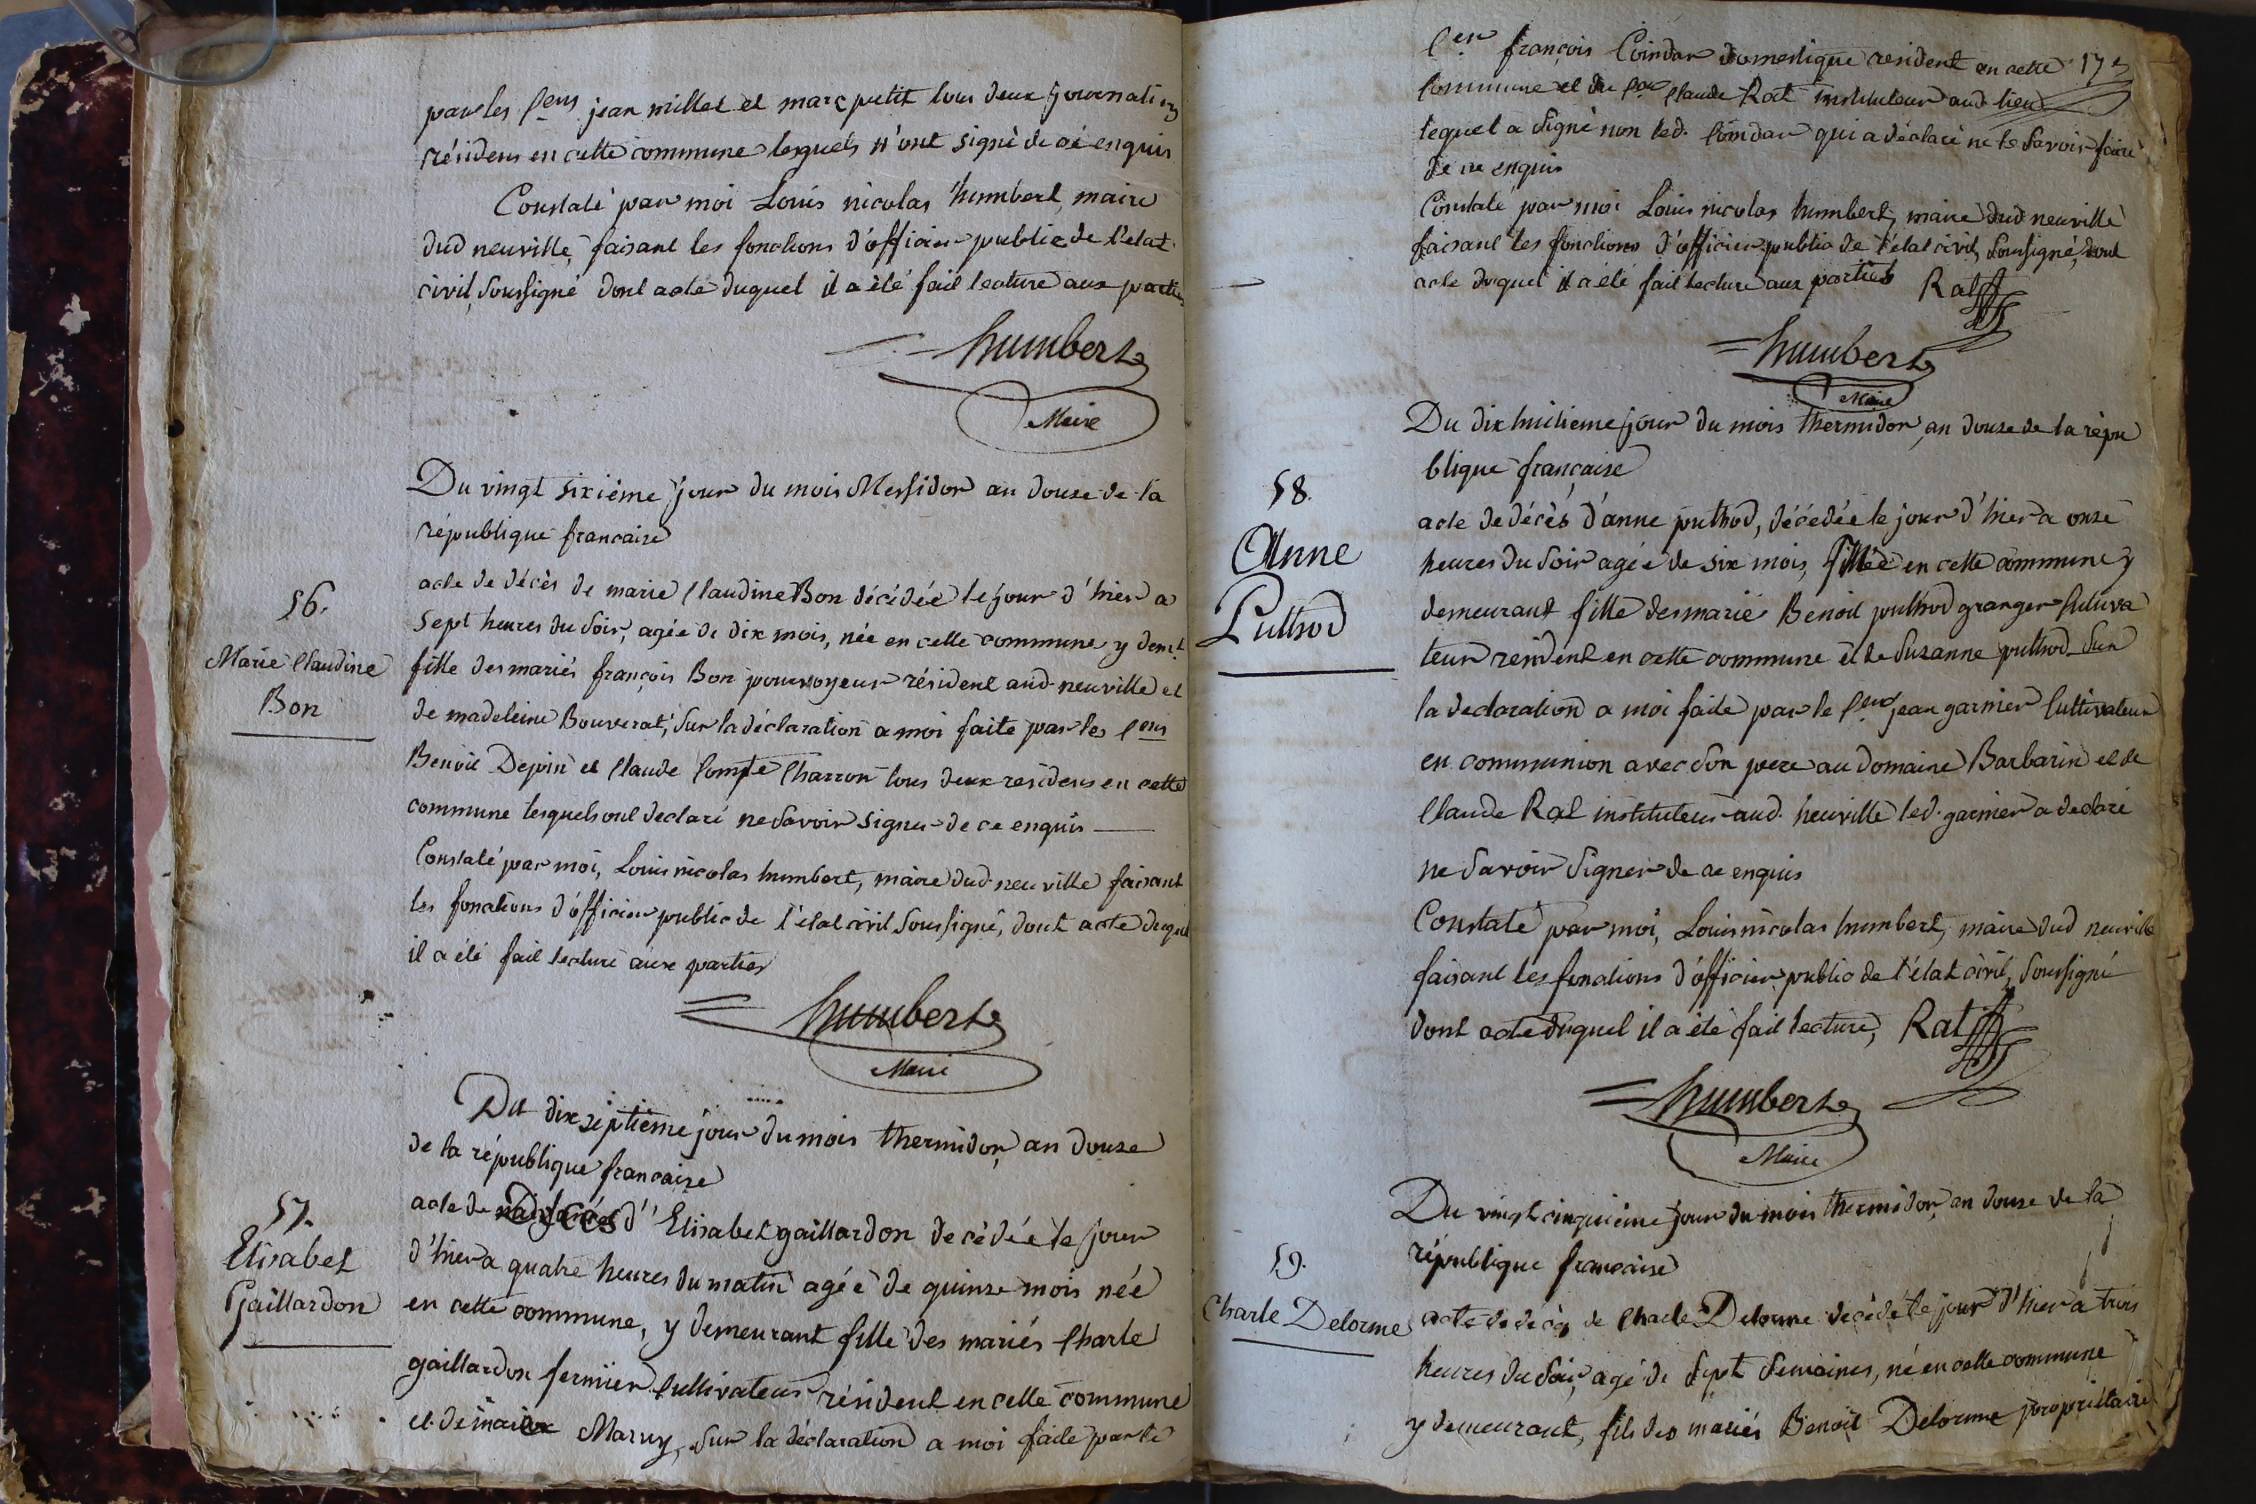 par les Cens jean millet et marc petit tous deux journaliers
résidens en cette commune lesquels n'ont signé de ce enquis
Constaté par moi Louis nicolas humbert, maire
dud neuville, faisant les fonctions d'officier public de l'etat
civil, soussigné dont acte duquel il a été fait lecture aux parties
humbert
Maire
Du vingt sixième jour du mois Messidor an douze de la
république francaise
56.
Marie Claudine
Bon
acte de décès de marie Claudine Bon décédée le jour d'hier a
sept heures du soir, agée de dix mois, née en cette commune y demt
fille des mariés françois Bon pourvoyeur résident aud neuville et
de madeleine Bouverat, sur la déclaration a moi faite par les Cens
Benoit Depin et Claude Compte Charron tous deux residens en cette
commune lesquels ont declaré ne savoir signer de ce enquis
Constaté par moi, Louis nicolas humbert, maire dud neuville faisant
les fonctions d'officier public de l'état civil soussigné, dont acte duquel
il a été fait lecture aux parties
humbert
Maire
Du dix septième jour du mois thermidor, an douze
de la république francaise
57.
Elisabet
Gaillardon
acte de Décès d'Elisabet gaillardon decédée le jour
d'hier a quatre heures du matin agée de quinze mois née
en cette commune, y demeurant fille des mariés Charle
gaillardon fermier Cultivateur résident en cette commune
et de Maruy, sur la déclaration a moi faite par le
17
Cen françois Coindar domestique resident en cette
Commune et du Cen Claude Rat instituteur aud lieu
lequel a signé non led. Coindar qui a déclaré ne le savoir faire
de ce enquis
Constaté par moi Louis nicolas humbert, maire dud neuville
faisant les fonctions d'officier public de l'état civil, soussigné, dont
acte duquel il a été fait lecture aux parties Rat
humbert
Maire
Du dix huitieme jour du mois thermidor, an douze de la répu
blique française
58.
Anne
Puthod
acte de décès d'anne puthod, décédée le jour d'hier a onze
heures du soir agée de six mois, née en cette commune y
demeurant fille des mariés Benoit puthod granger Cultiva
teur resident en cette commune et de Suzanne puthod sur
la declaration a moi faite par le Cen jean garnier Cultivateur
en communion avec son pere au domaine Barbarin et de
Claude Rat instituteur aud. neuville led. garnier a declaré
ne savoir signer de ce enquis
Constaté par moi, Louis nicolas humbert, maire dud neuville
faisant les fonctions d'officier public de l'état civil, soussigné
dont acte duquel il a été fait lecture, Rat
humbert
Maire
Du vingt cinquième jour du mois thermidor, an douze de la
république francaise
59.
Charle Delorme
acte de décès de Charle Delorme decédé le jour d'hier a trois
heures du soir, agé de sept semaines, né en cette commune
y demeurant, fils des mariés Benoit Delorme propriétaire